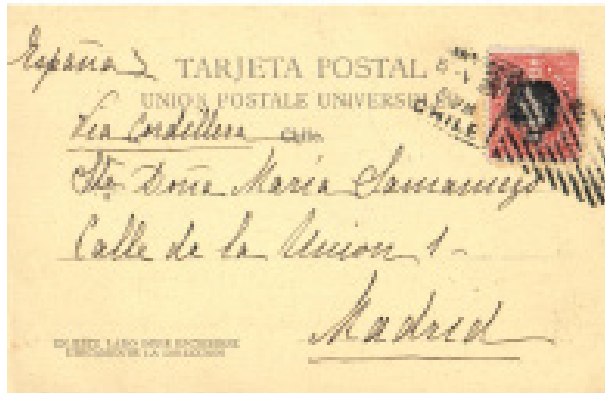 España
TARJETA POSTAL
UNION POSTALE UNIVERSELLE
CHILE
Via Cordillera
Sta. Doña Maria Samaniego
Calle de la Union 1-
Madrid
EN ESTE LADO DEBE ESCRIBIRSE
UNICAMENTE LA DIRECCION